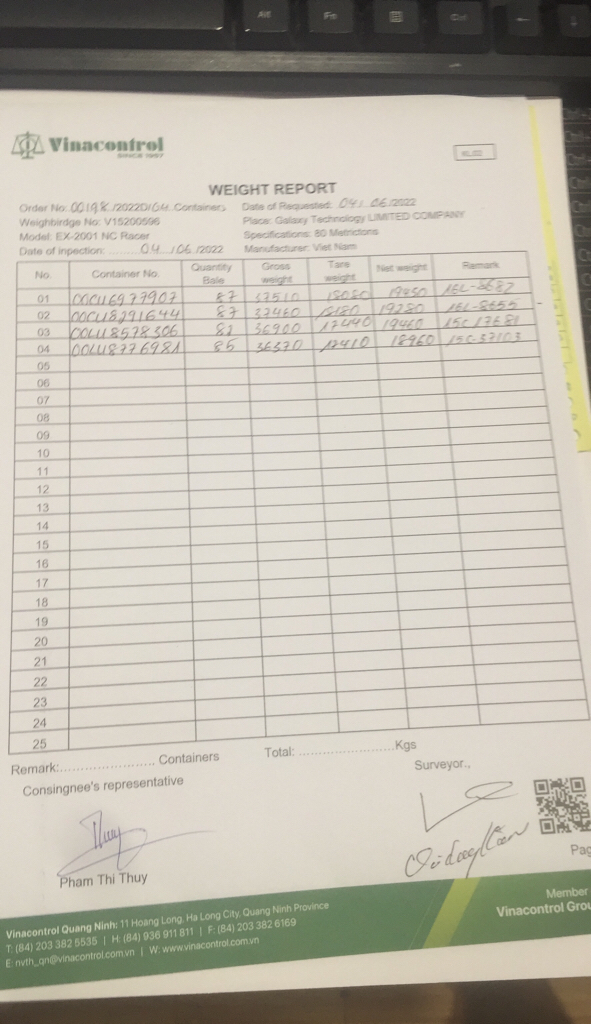 Alt
Fn
Ctrl
Vinacontrol
SINCE 1957
KL/02
WEIGHT REPORT
Order No: 00198/2022D/04 Containers Date of Requested: 04/06/2022
Weighbirdge No: V15200596 Place: Galaxy Technology LIMITED COMPANY
Model: EX-2001 NC Racer Specifications: 80 Metrictons
Date of inpection: 04/06/2022 Manufacturer: Viet Nam
No. Container No. Quantity Bale Gross weight Tare weight Net weight Remark
01 OOCU6977907 87 37510
02 OOCU8291644 87 19280 16L-8655
03 OOLU8578306 36900 17440 19460 15C-17681
04 OOLU8776981 85 36370 17410 18960 15C-37103
05
06
07
08
09
10
11
12
13
14
15
16
17
18
19
20
21
22
23
24
25
Remark:........................ Containers Total: ........................Kgs
Consingnee's representative Surveyor.,
Thuy
Pham Thi Thuy
Pag
Vinacontrol Quang Ninh: 11 Hoang Long, Ha Long City, Quang Ninh Province
T: (84) 203 382 5535 | H: (84) 936 911 811 | F: (84) 203 382 6169
E: nvth_qn@vinacontrol.com.vn | W: www.vinacontrol.com.vn
Member
Vinacontrol Grou